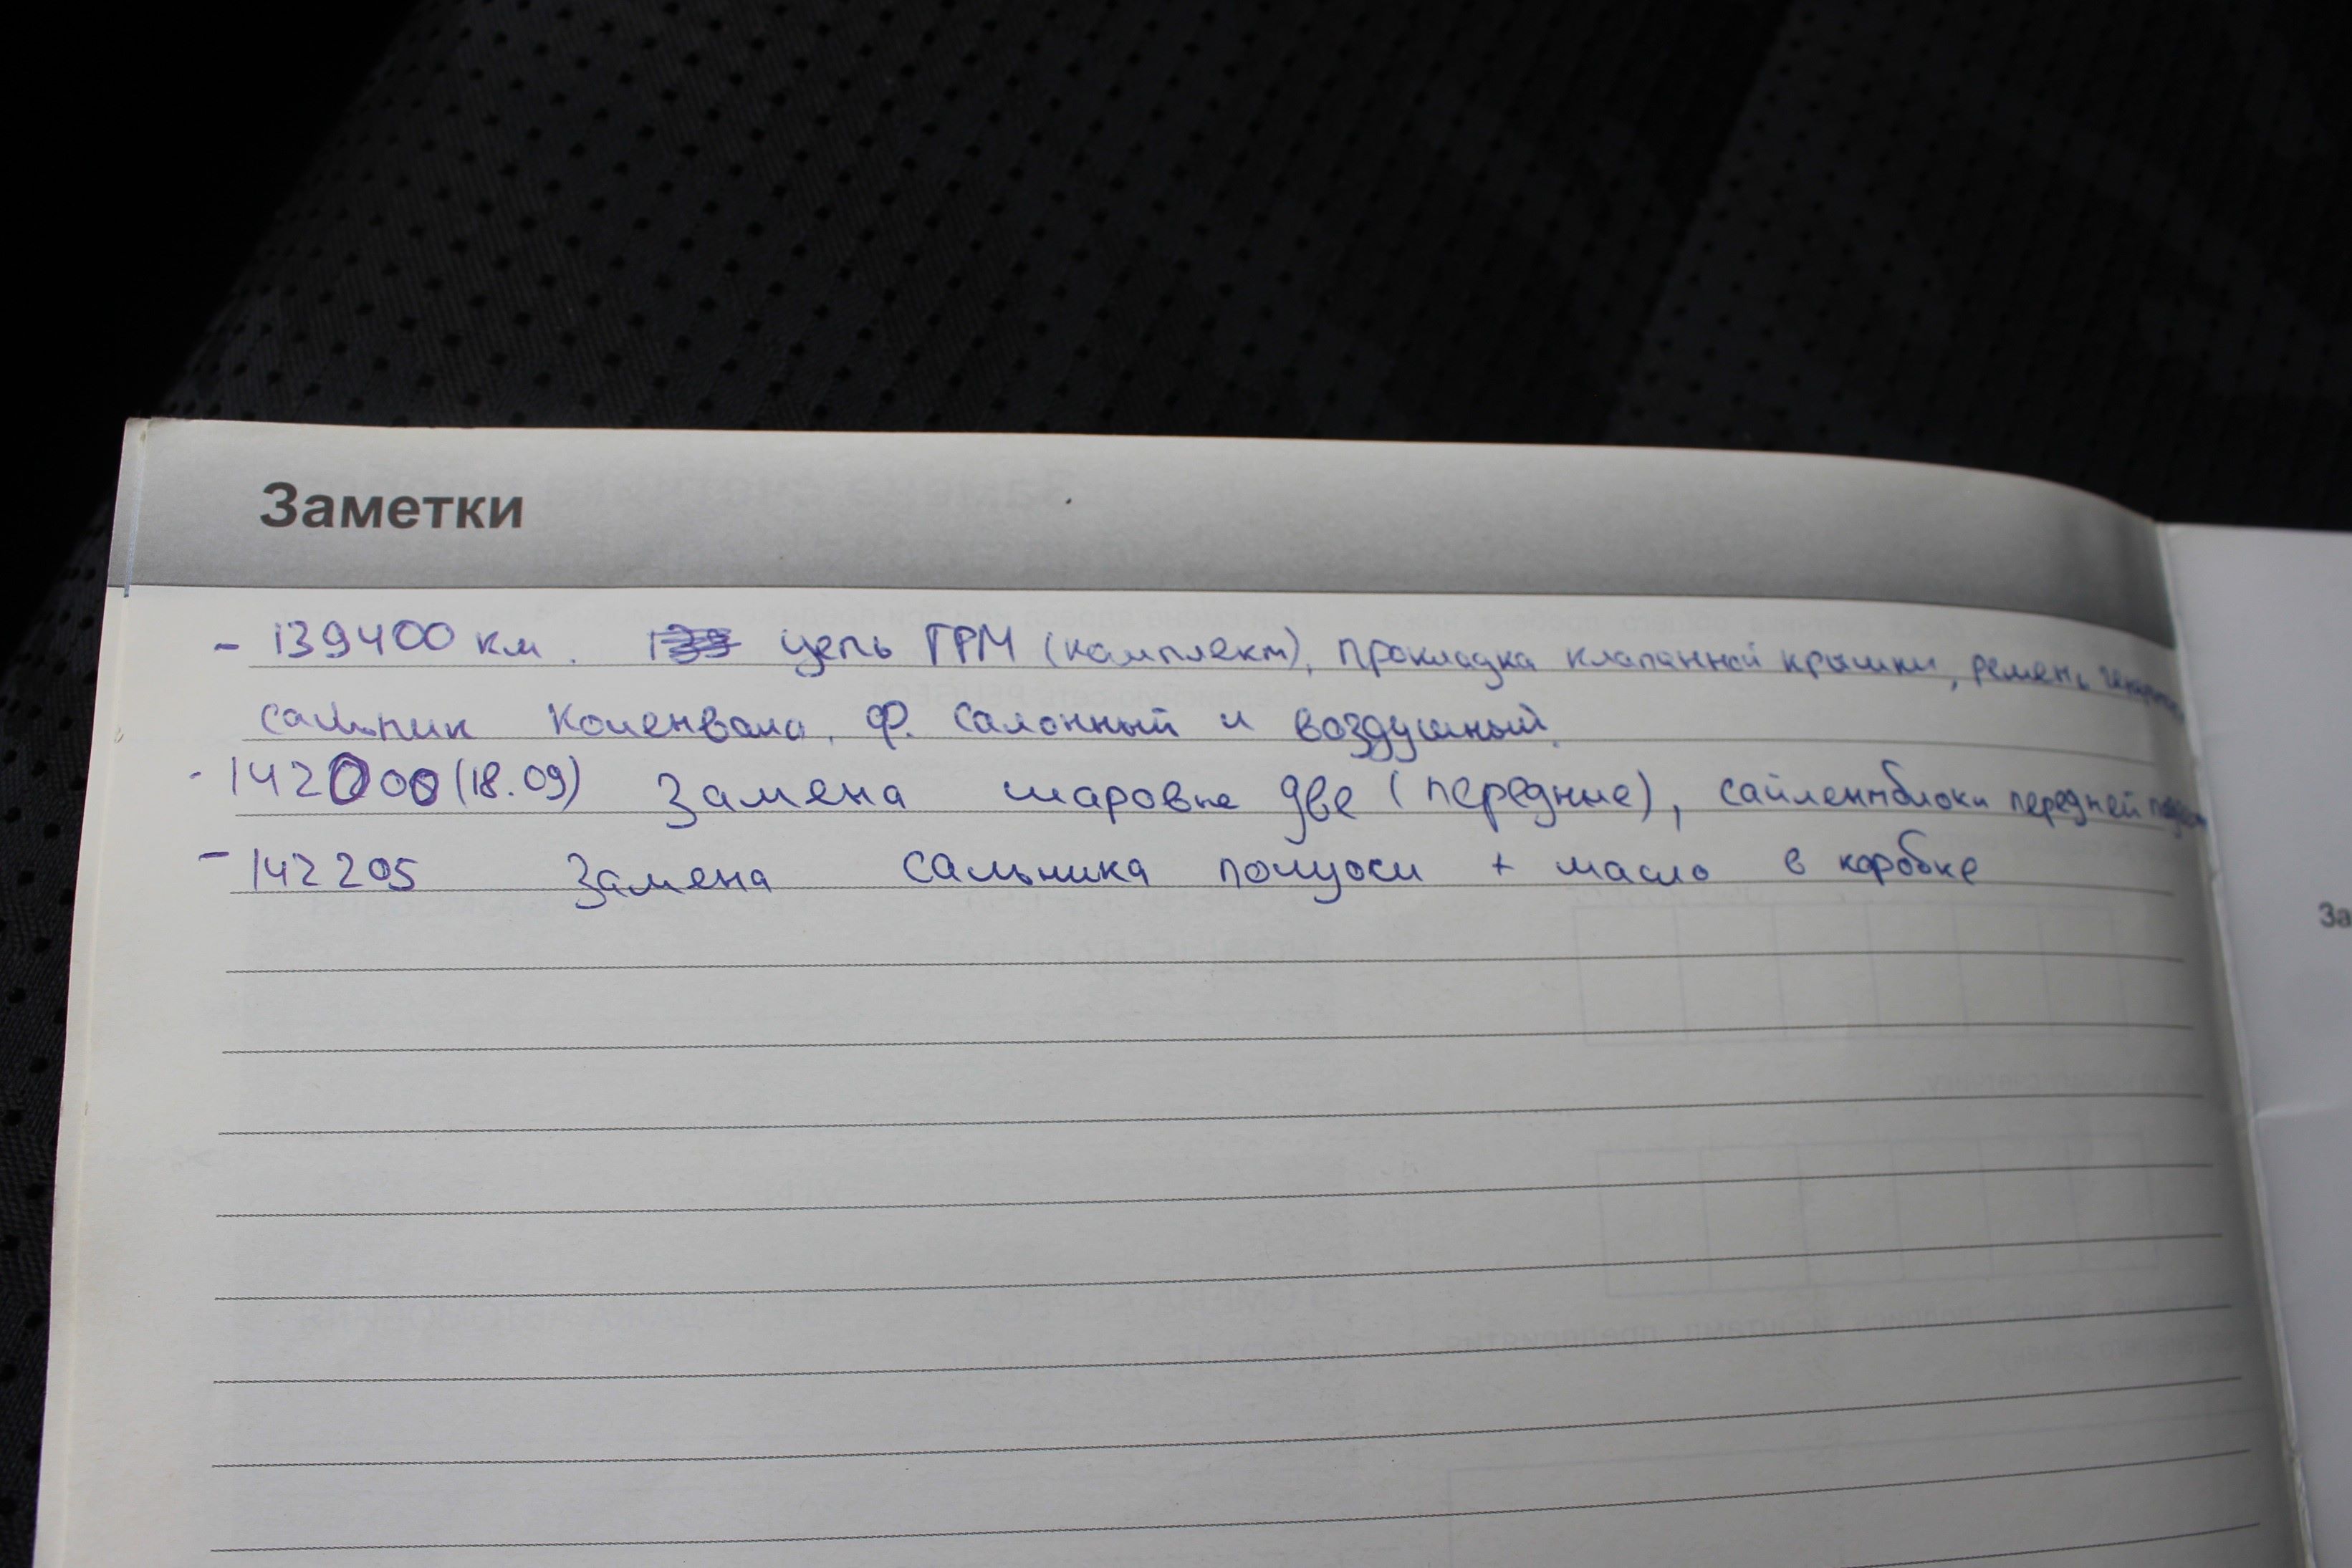 Заметки
- 139400 км. цепь ГРМ (комплект), прокладка клапанной крышки, ремень
сальник коленвала, ф. салонный и воздушный.
- 142000 (18.09) Замена шаровые две (передние), сайлентблоки передней
- 142205 Замена сальника полуоси + масло в коробке
За